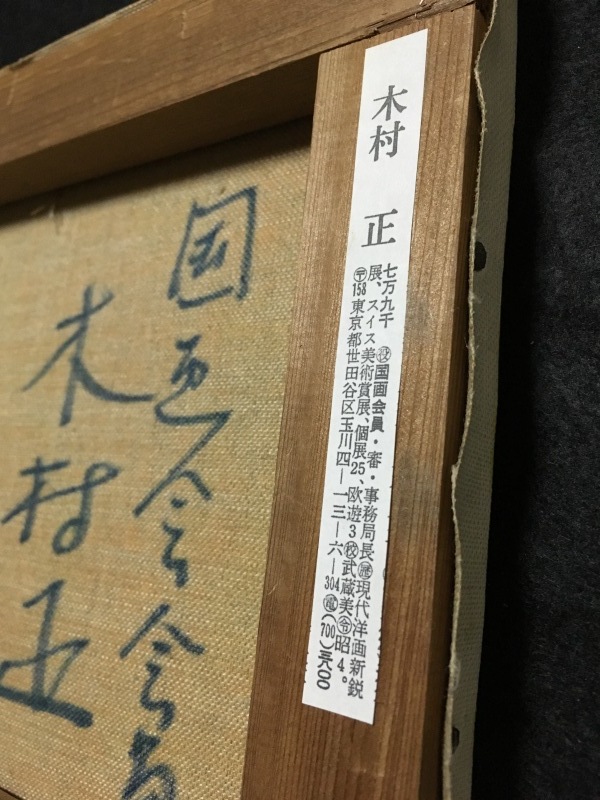 木村 正
七万九千 ㊢国画会員・審・事務局長㊭現代洋画新鋭
展、スイス美術賞展、個展25、欧遊3㊭武蔵美㊭昭4。
〒158東京都世田谷区玉川四-一三-六-304㊭(700)三八〇〇
国画会会員
木村正